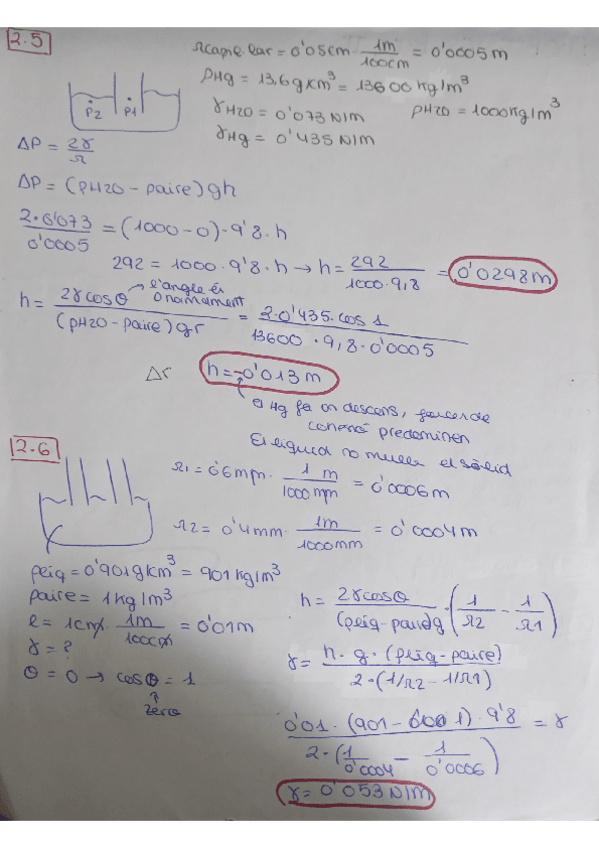 2.5
rcapil·lar = 0'05cm · 1m/100cm = 0'0005m
ρHg = 13,6g/cm³ = 13600 kg/m³
γH2O = 0'073 N/m ρH2O = 1000kg/m³
γHg = 0'435 N/m
P2 P1
ΔP = 2γ/r
ΔP = (ρH2O - ρaire)gh
2·0'073/0'0005 = (1000-0)·9'8·h
292 = 1000·9'8·h → h = 292/1000·9,8 = 0'0298m
l'angle és 0 normalment
h = 2γcosθ/(ρH2O-ρaire)gr = 2·0'435·cos 1/13600·9,8·0'0005
Δr h = -0'013m
el Hg fa un descens, forces de
cohesió predominen
El líquid no mulla el sòlid
2.6
r1 = 0'6mm · 1m/1000mm = 0'0006m
r2 = 0'4mm · 1m/1000mm = 0'0004m
ρliq = 0'901g/cm³ = 901kg/m³
ρaire = 1kg/m³
l = 1cm · 1m/100cm = 0'01m
γ = ?
θ = 0 → cosθ = 1
zero
h = 2γcosθ/(ρliq-ρaire)g · (1/r2 - 1/r1)
γ = h·g·(ρliq-ρaire)/2·(1/r2-1/r1)
0'01·(901-1)·9'8/2·(1/0'0004 - 1/0'0006) = γ
γ = 0'053 N/m